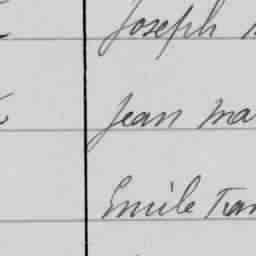 Joseph
Jean Ma
Emile Fran